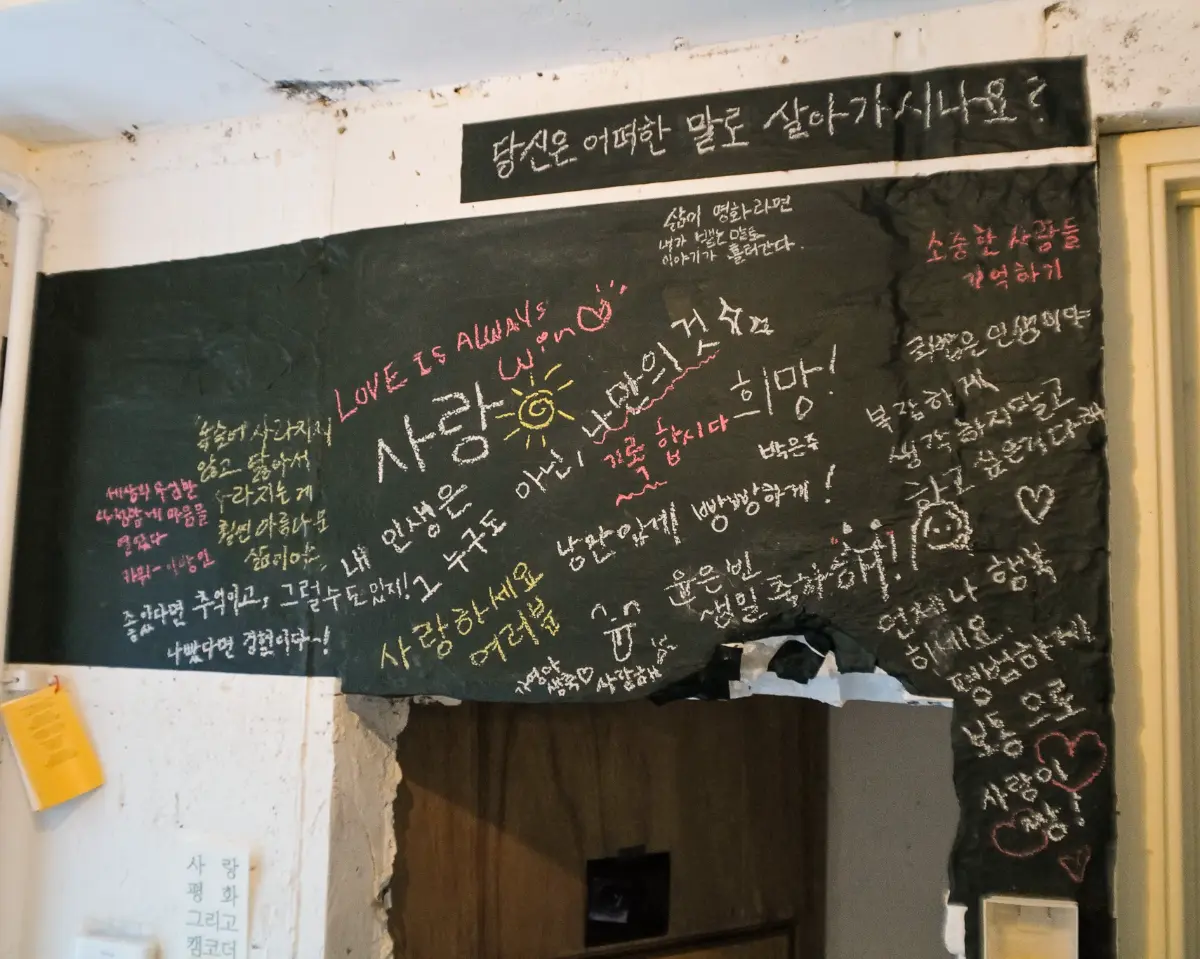 당신은 어떠한 말로 살아가시나요?
삶이 영화라면
내가 뱉는 말로
이야기가 흘러간다.
소중한 사람들
기억하기
LOVE IS ALWAYS
win
사랑
내 인생은
그 누구도
아닌,
나만의 것
기록 합시다
희망!
박은주
낭만있게 빵빵하게!
윤은빈
생일 축하해!!
사라지지
않고 닳아서
사라지는게
훨씬 아름다운
삶이야
세상의
마음을
열었다
좋았다면 추억이고, 그럴 수도 있지!
나빴다면 경험이다~!
사랑하세요
여러분
생축♡ 사랑해
인생이야
복잡하게
생각하지말고
하고 싶은거 다해
언제나 행복
하세요
평범하지만
보통으로
사랑이
짱!
사랑
평화
그리고
캠코더